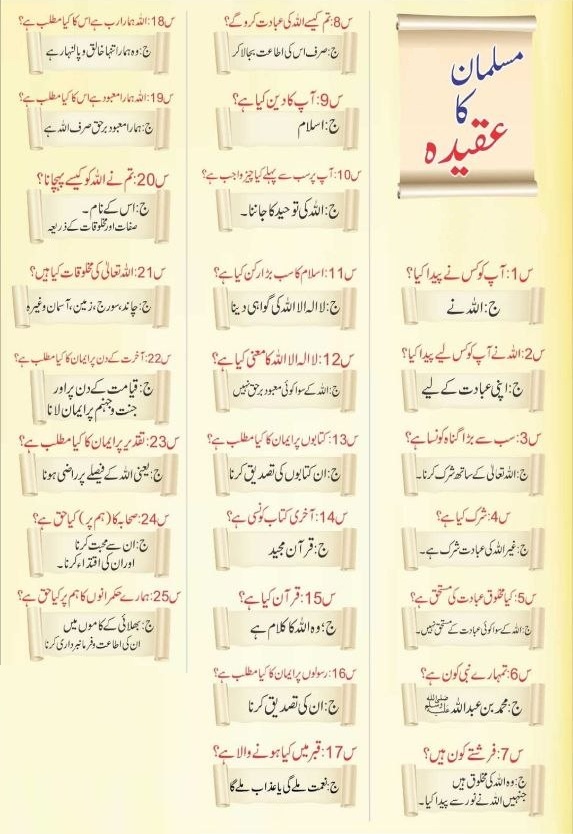 مسلمان
کا
عقیدہ
س1: آپ کو کس نے پیدا کیا؟
ج: اللہ نے
س2: اللہ نے آپ کو کس لیے پیدا کیا؟
ج: اپنی عبادت کے لیے
س3: سب سے بڑا گناہ کونسا ہے؟
ج: اللہ تعالیٰ کے ساتھ شرک کرنا۔
س4: شرک کیا ہے؟
ج: غیر اللہ کی عبادت شرک ہے۔
س5: کیا مخلوق عبادت کی مستحق ہے؟
ج: اللہ کے سوا کوئی عبادت کے مستحق نہیں۔
س6: تمہارے نبی کون ہے؟
ج: محمد بن عبد اللہ ﷺ
س7: فرشتے کون ہیں؟
ج: وہ اللہ کی مخلوق ہیں
جنہیں اللہ نے نور سے پیدا کیا۔
س8: تم کیسے اللہ کی عبادت کرو گے؟
ج: صرف اس کی اطاعت بجا لا کر
س9: آپ کا دین کیا ہے؟
ج: اسلام
س10: آپ پر سب سے پہلے کیا چیز واجب ہے؟
ج: اللہ کی توحید کا جاننا۔
س11: اسلام کا سب بڑا رکن کیا ہے؟
ج: لا الہ الا اللہ کی گواہی دینا
س12: لا الہ الا اللہ کا معنی کیا ہے؟
ج: اللہ کے سوا کوئی معبود برحق نہیں
س13: کتابوں پر ایمان کا کیا مطلب ہے؟
ج: ان کتابوں کی تصدیق کرنا
س14: آخری کتاب کونسی ہے؟
ج: قرآن مجید
س15: قرآن کیا ہے؟
ج: وہ اللہ کا کلام ہے
س16: رسولوں پر ایمان کا کیا مطلب ہے؟
ج: ان کی تصدیق کرنا
س17: قبر میں کیا ہونے والا ہے؟
ج: نعمت ملے گی یا عذاب ملے گا
س18: اللہ ہمارا رب ہے اس کا کیا مطلب ہے؟
ج: وہ ہمارا تنہا خالق و پالنہار ہے
س19: اللہ ہمارا معبود ہے اس کا کیا مطلب ہے؟
ج: ہمارا معبود برحق صرف اللہ ہے
س20: تم نے اللہ کو کیسے پہچانا؟
ج: اس کے نام۔
صفات اور مخلوقات کے ذریعہ
س21: اللہ تعالیٰ کی مخلوقات کیا ہیں؟
ج: چاند، سورج، زمین، آسمان وغیرہ
س22: آخرت کے دن پر ایمان کا کیا مطلب ہے؟
ج: قیامت کے دن پر اور
جنت و جہنم پر ایمان لانا
س23: تقدیر پر ایمان کا کیا مطلب ہے؟
ج: یعنی اللہ کے فیصلے پر راضی ہونا
س24: صحابہ کا (ہم پر) کیا حق ہے؟
ج: ان سے محبت کرنا
اور ان کی اقتداء کرنا۔
س25: ہمارے حکمرانوں کا ہم پر کیا حق ہے؟
ج: بھلائی کے کاموں میں
ان کی اطاعت و فرمانبرداری کرنا